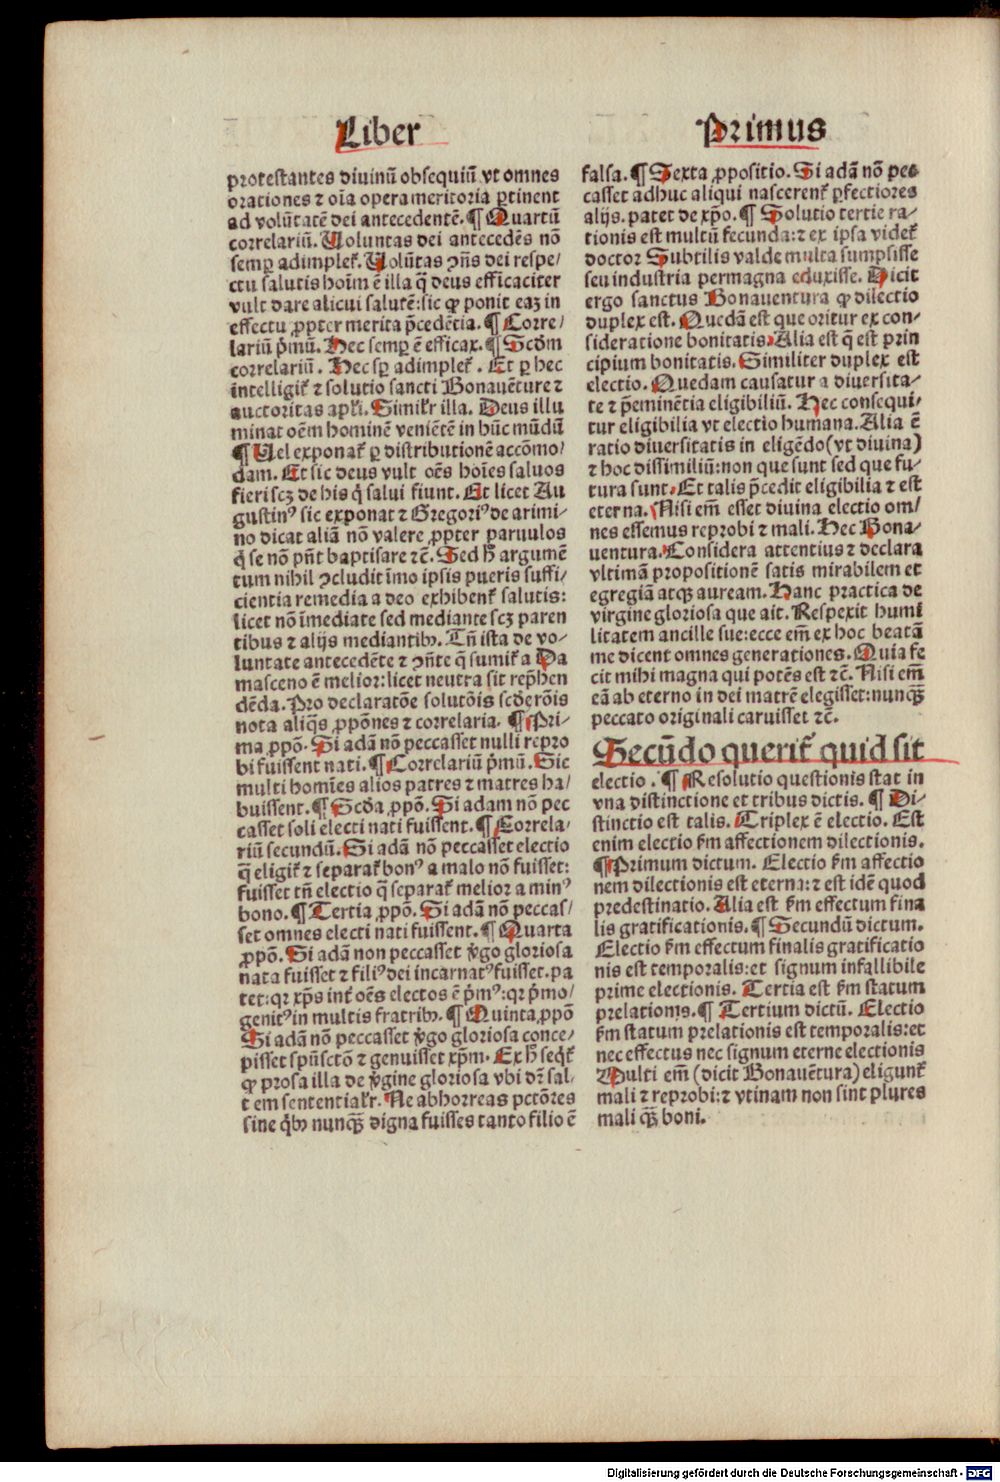 Liber
protestantes diuinū obsequiū vt omnes
orationes ⁊ oīa opera meritoria ꝑtinent
ad volūtatē dei antecedentē. ¶ Quartū
correlariū. Voluntas dei antecedēs nō
semꝑ adimplet̄. Volūtas ↄñs dei respe/
ctu salutis hoīm ē illa q̄ deus efficaciter
vult dare alicui salutē: sic ꝙ ponit eaꝫ in
effectu ꝓpter merita p̄cedētia. ¶ Corre/
lariū p̄mū. Hec semꝑ ē efficax. ¶ Scd̄m
correlariū. Hec sꝑ adimplet̄. Et ꝑ hec
intelligit̄ ⁊ solutio sancti Bonauēture ⁊
auctoritas apl̄i. Simil̄r illa. Deus illu
minat oēm hominē veniētē in hūc mūdū
¶ Vel exponat̄ ꝑ distributionē accōmo/
dam. Et sic deus vult oēs hoīes saluos
fieri scꝫ de his q̇ salui fiunt. Et licet Au
gustinꝰ sic exponat ⁊ Gregoriꝰ de arimi-
no dicat aliā nō valere ꝓpter paruulos
q̇ se nō pn̄t baptisare ⁊c̄. Sed h̄ argumē
tum nihil ↄcludit īmo ipsis pueris suffi/
cientia remedia a deo exhibent̄ salutis:
licet nō īmediate sed mediante scꝫ paren
tibus ⁊ alijs mediantibꝫ. Tn̄ ista de vo-
luntate antecedēte ⁊ ↄn̄te q̄ sumit̄ a Da
masceno ē melior: licet neutra sit rep̄hen
dēda. Pro declaratōe solutōis scd̄e rōis
nota aliq̇s ꝓpōnes ⁊ correlaria. ¶ Pri-
ma ꝓpō. Si adā nō peccasset nulli repro
bi fuissent nati. ¶ Correlariū p̄mū. Sic
multi homīes alios patres ⁊ matres ha/
buissent. ¶ Scd̄a ꝓpō. Si adam nō pec
casset soli electi nati fuissent. ¶ Correla/
riū secundū. Si adā nō peccasset electio
q̄ eligit̄ ⁊ separat̄ bonꝰ a malo nō fuisset:
fuisset tn̄ electio q̄ separat̄ melior a minꝰ
bono. ¶ Tertia ꝓpō. Si adā nō peccas/
set omnes electi nati fuissent. ¶ Quarta
ꝓpō. Si adā non peccasset v̇go gloriosa
nata fuisset ⁊ filiꝰ dei incarnatꝰ fuisset. pa
tet: qꝛ xp̄s int̄ oēs electos ē p̄mꝰ: qꝛ p̄mo/
genitꝰ in multis fratribꝫ. ¶ Quinta ꝓpō
Si adā nō peccasset v̇go gloriosa conce/
pisset spūsctō ⁊ genuisset xp̄m. Ex h̄ seq̇t̄
ꝙ prosa illa de v̇gine gloriosa vbi dr̄ sal/
tem sentential̄r. Ne abhorreas pctōres
sine q̇bꝫ nunqꝫ̄ digna fuisses tanto filio ē
Primus
falsa. ¶ Sexta ꝓpositio. Si adā nō pec
casset adhuc aliqui nascerent̄ ꝑfectiores
alijs. patet de xp̄o. ¶ Solutio tertie ra-
tionis est multū fecunda: ⁊ ex ipsa videt̄
doctor Subtilis valde multa sumpsisse
seu industria permagna eduxisse. Dicit
ergo sanctus Bonauentura ꝙ dilectio
duplex est. Quedā est que oritur ex con-
sideratione bonitatis. Alia est q̄ est prin
cipium bonitatis. Similiter duplex est
electio. Quedam causatur a diuersita-
te ⁊ p̄eminētia eligibiliū. Hec consequi/
tur eligibilia vt electio humana. Alia ē
ratio diuersitatis in eligēdo (vt diuina)
⁊ hoc dissimiliū: non que sunt sed que fu/
tura sunt. Et talis p̄cedit eligibilia ⁊ est
eterna. Nisi em̄ esset diuina electio om/
nes essemus reprobi ⁊ mali. Hec Bona-
uentura. Considera attentius ⁊ declara
vltimā propositionē satis mirabilem et
egregiā atqꝫ auream. Hanc practica de
virgine gloriosa que ait. Respexit humi
litatem ancille sue: ecce em̄ ex hoc beatā
me dicent omnes generationes. Quia fe
cit mihi magna qui potēs est ⁊c̄. Nisi em̄
eā ab eterno in dei matrē elegisset: nunqꝫ̄
peccato originali caruisset ⁊c̄.
Secūdo querit̄ quid sit
electio. ¶ Resolutio questionis stat in
vna distinctione et tribus dictis. ¶ Di-
stinctio est talis. Triplex ē electio. Est
enim electio ẜm affectionem dilectionis.
¶ Primum dictum. Electio ẜm affectio
nem dilectionis est eterna: ⁊ est idē quod
predestinatio. Alia est ẜm effectum fina
lis gratificationis. ¶ Secundū dictum.
Electio ẜm effectum finalis gratificatio
nis est temporalis: et signum infallibile
prime electionis. Tertia est ẜm statum
prelationis. ¶ Tertium dictū. Electio
ẜm statum prelationis est temporalis: et
nec effectus nec signum eterne electionis
Multi em̄ (dicit Bonauētura) eligunt̄
mali ⁊ reprobi: ⁊ vtinam non sint plures
mali qꝫ̄ boni.
Digitalisierung gefördert durch die Deutsche Forschungsgemeinschaft - DFG